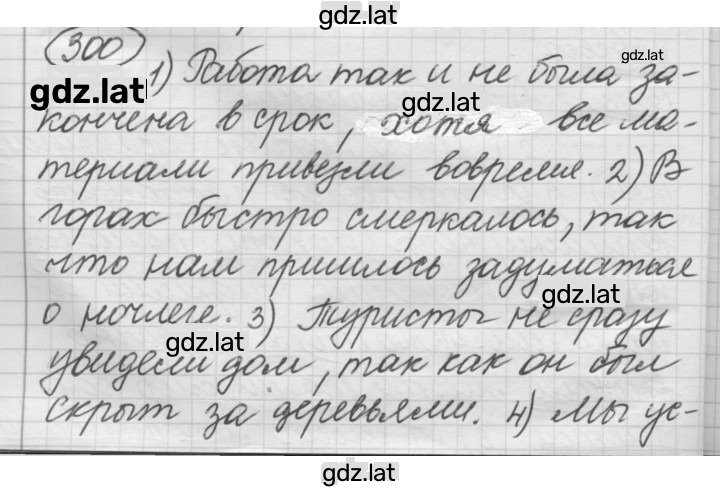 gdz.lat
(300)
gdz.lat
gdz.lat
1) Работа так и не была за-
gdz.lat
кончена в срок, хотя все ма-
териали привезли вовремя. 2) В
горах быстро смеркалось, так
что нам пришлось задуматься
gdz.lat
о ночлеге. 3) Туристы не сразу
gdz.lat
увидели дом, так как он был
скрыт за деревьями. 4) Мы ус-
gdz.lat